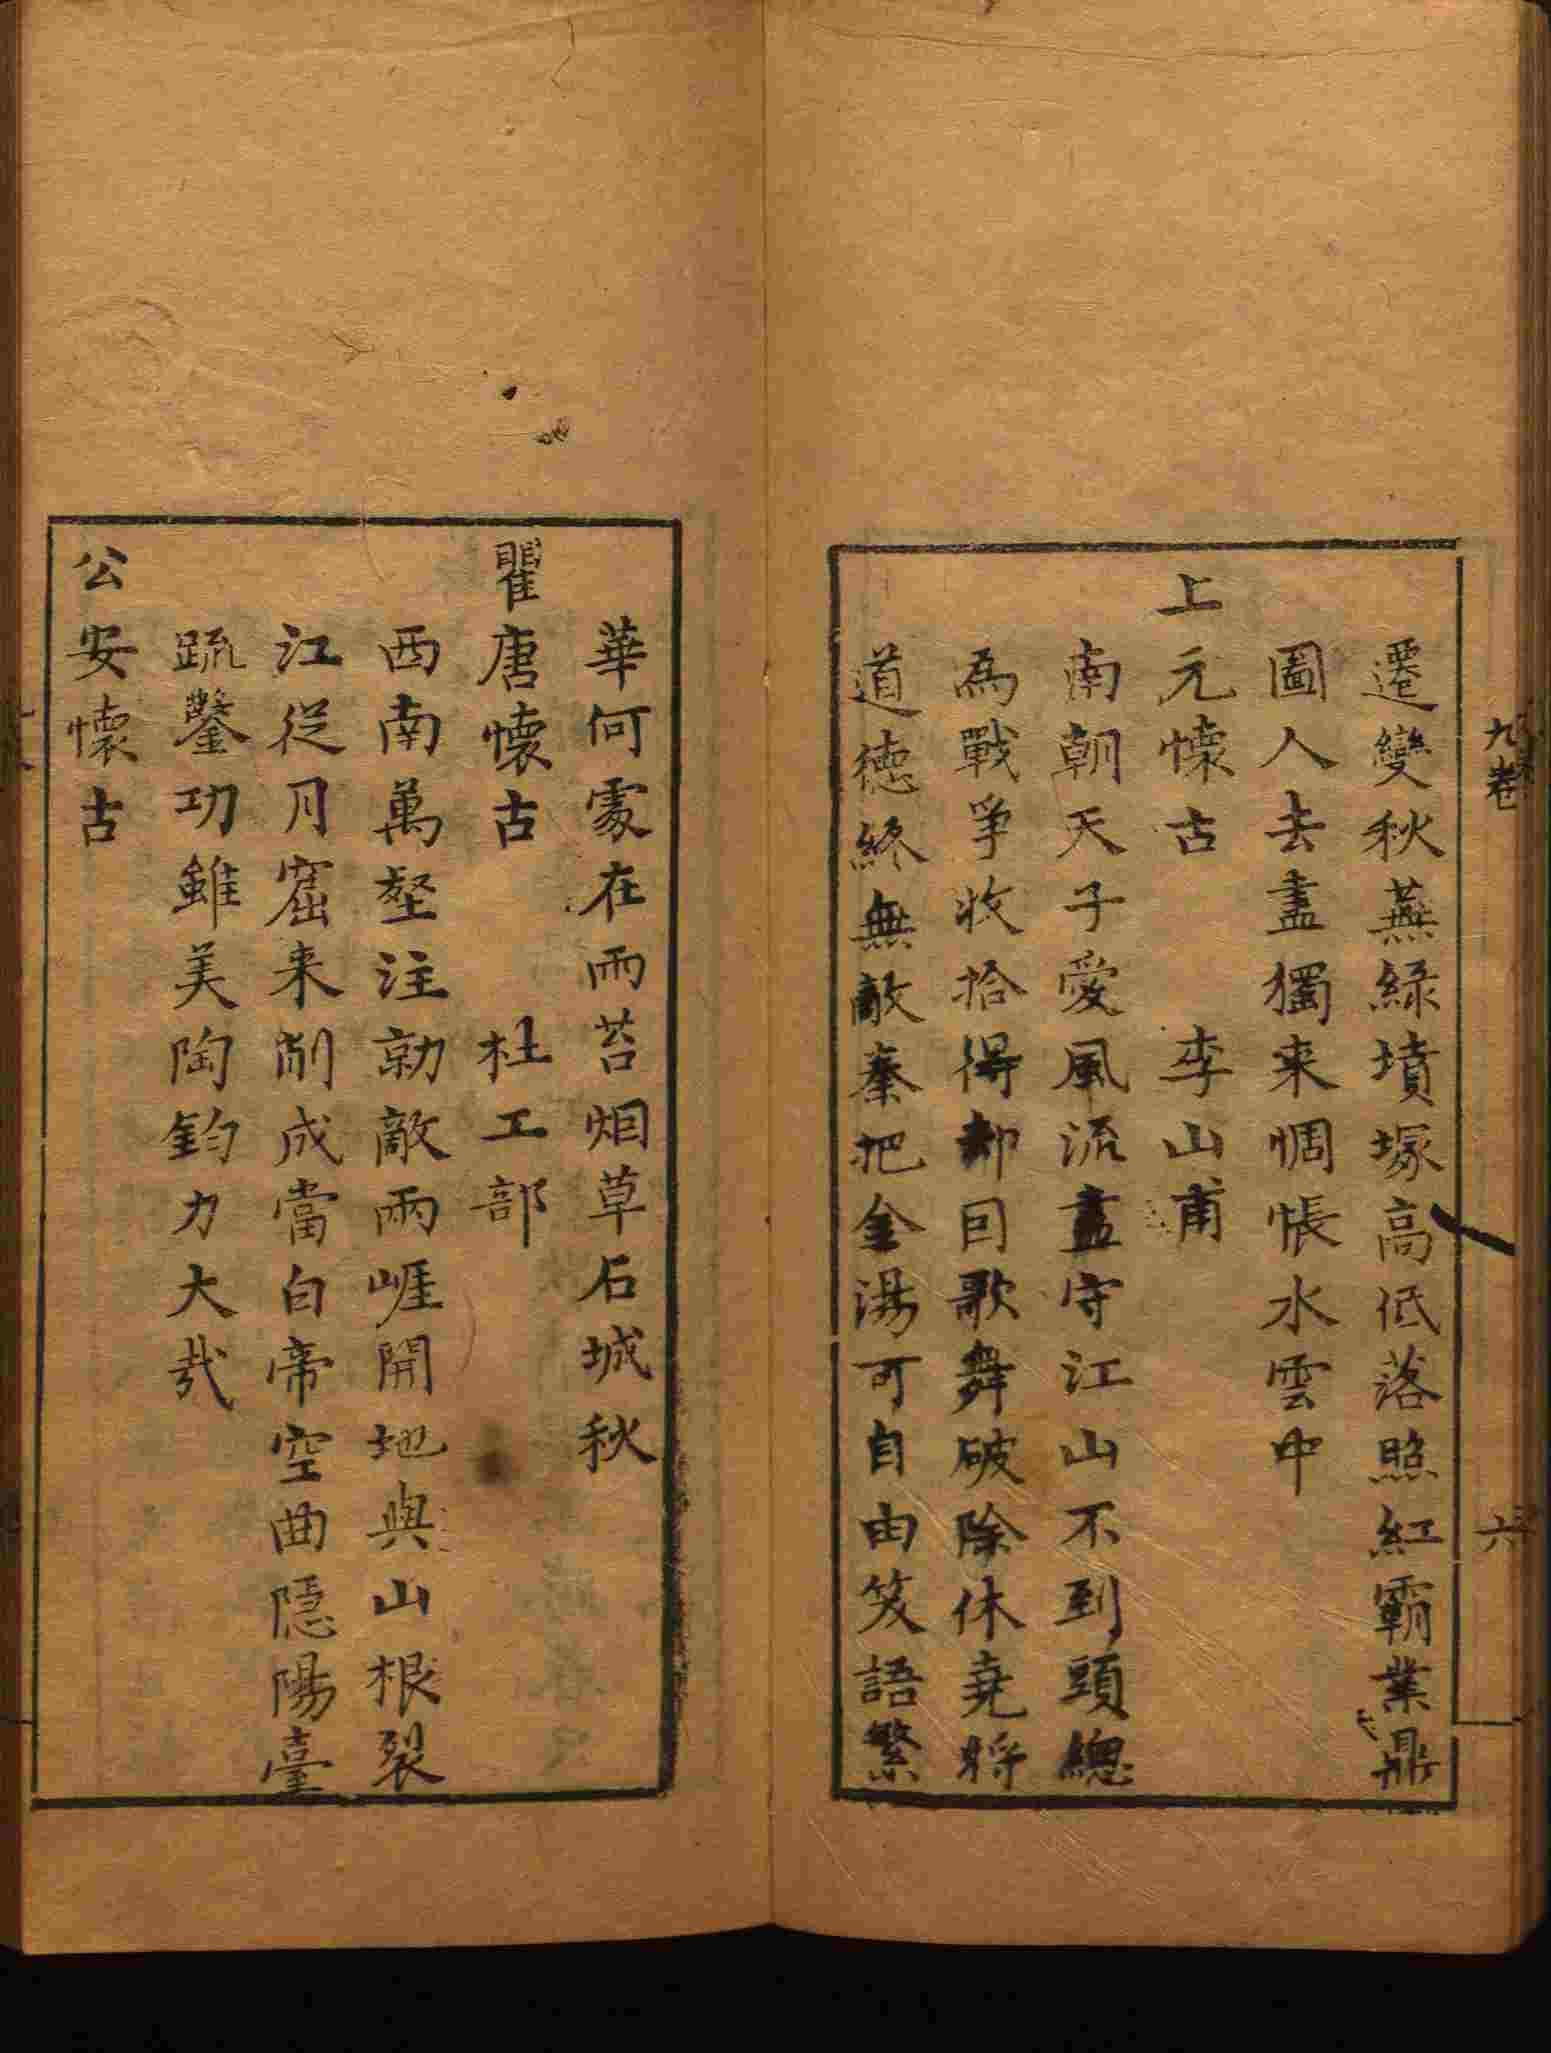 九卷
六
遷變秋蕪綠墳塚高低落照紅霸業鼎
圖人去盡獨来惆悵水雲中
上元懐古 李山甫
南朝天子愛風流盡守江山不到頭總
為戰爭收拾得却回歌舞破除休尭将
道徳終無敵秦把金湯可自由笑語繁
華何處在雨苔烟草石城秋
瞿唐懷古 杜工部
西南萬壑注勍敵兩崕開地與山根裂
江從月窟来削成當白帝空曲隱陽臺
䟽鑿功雖美陶鈞力大㢤
公安懷古